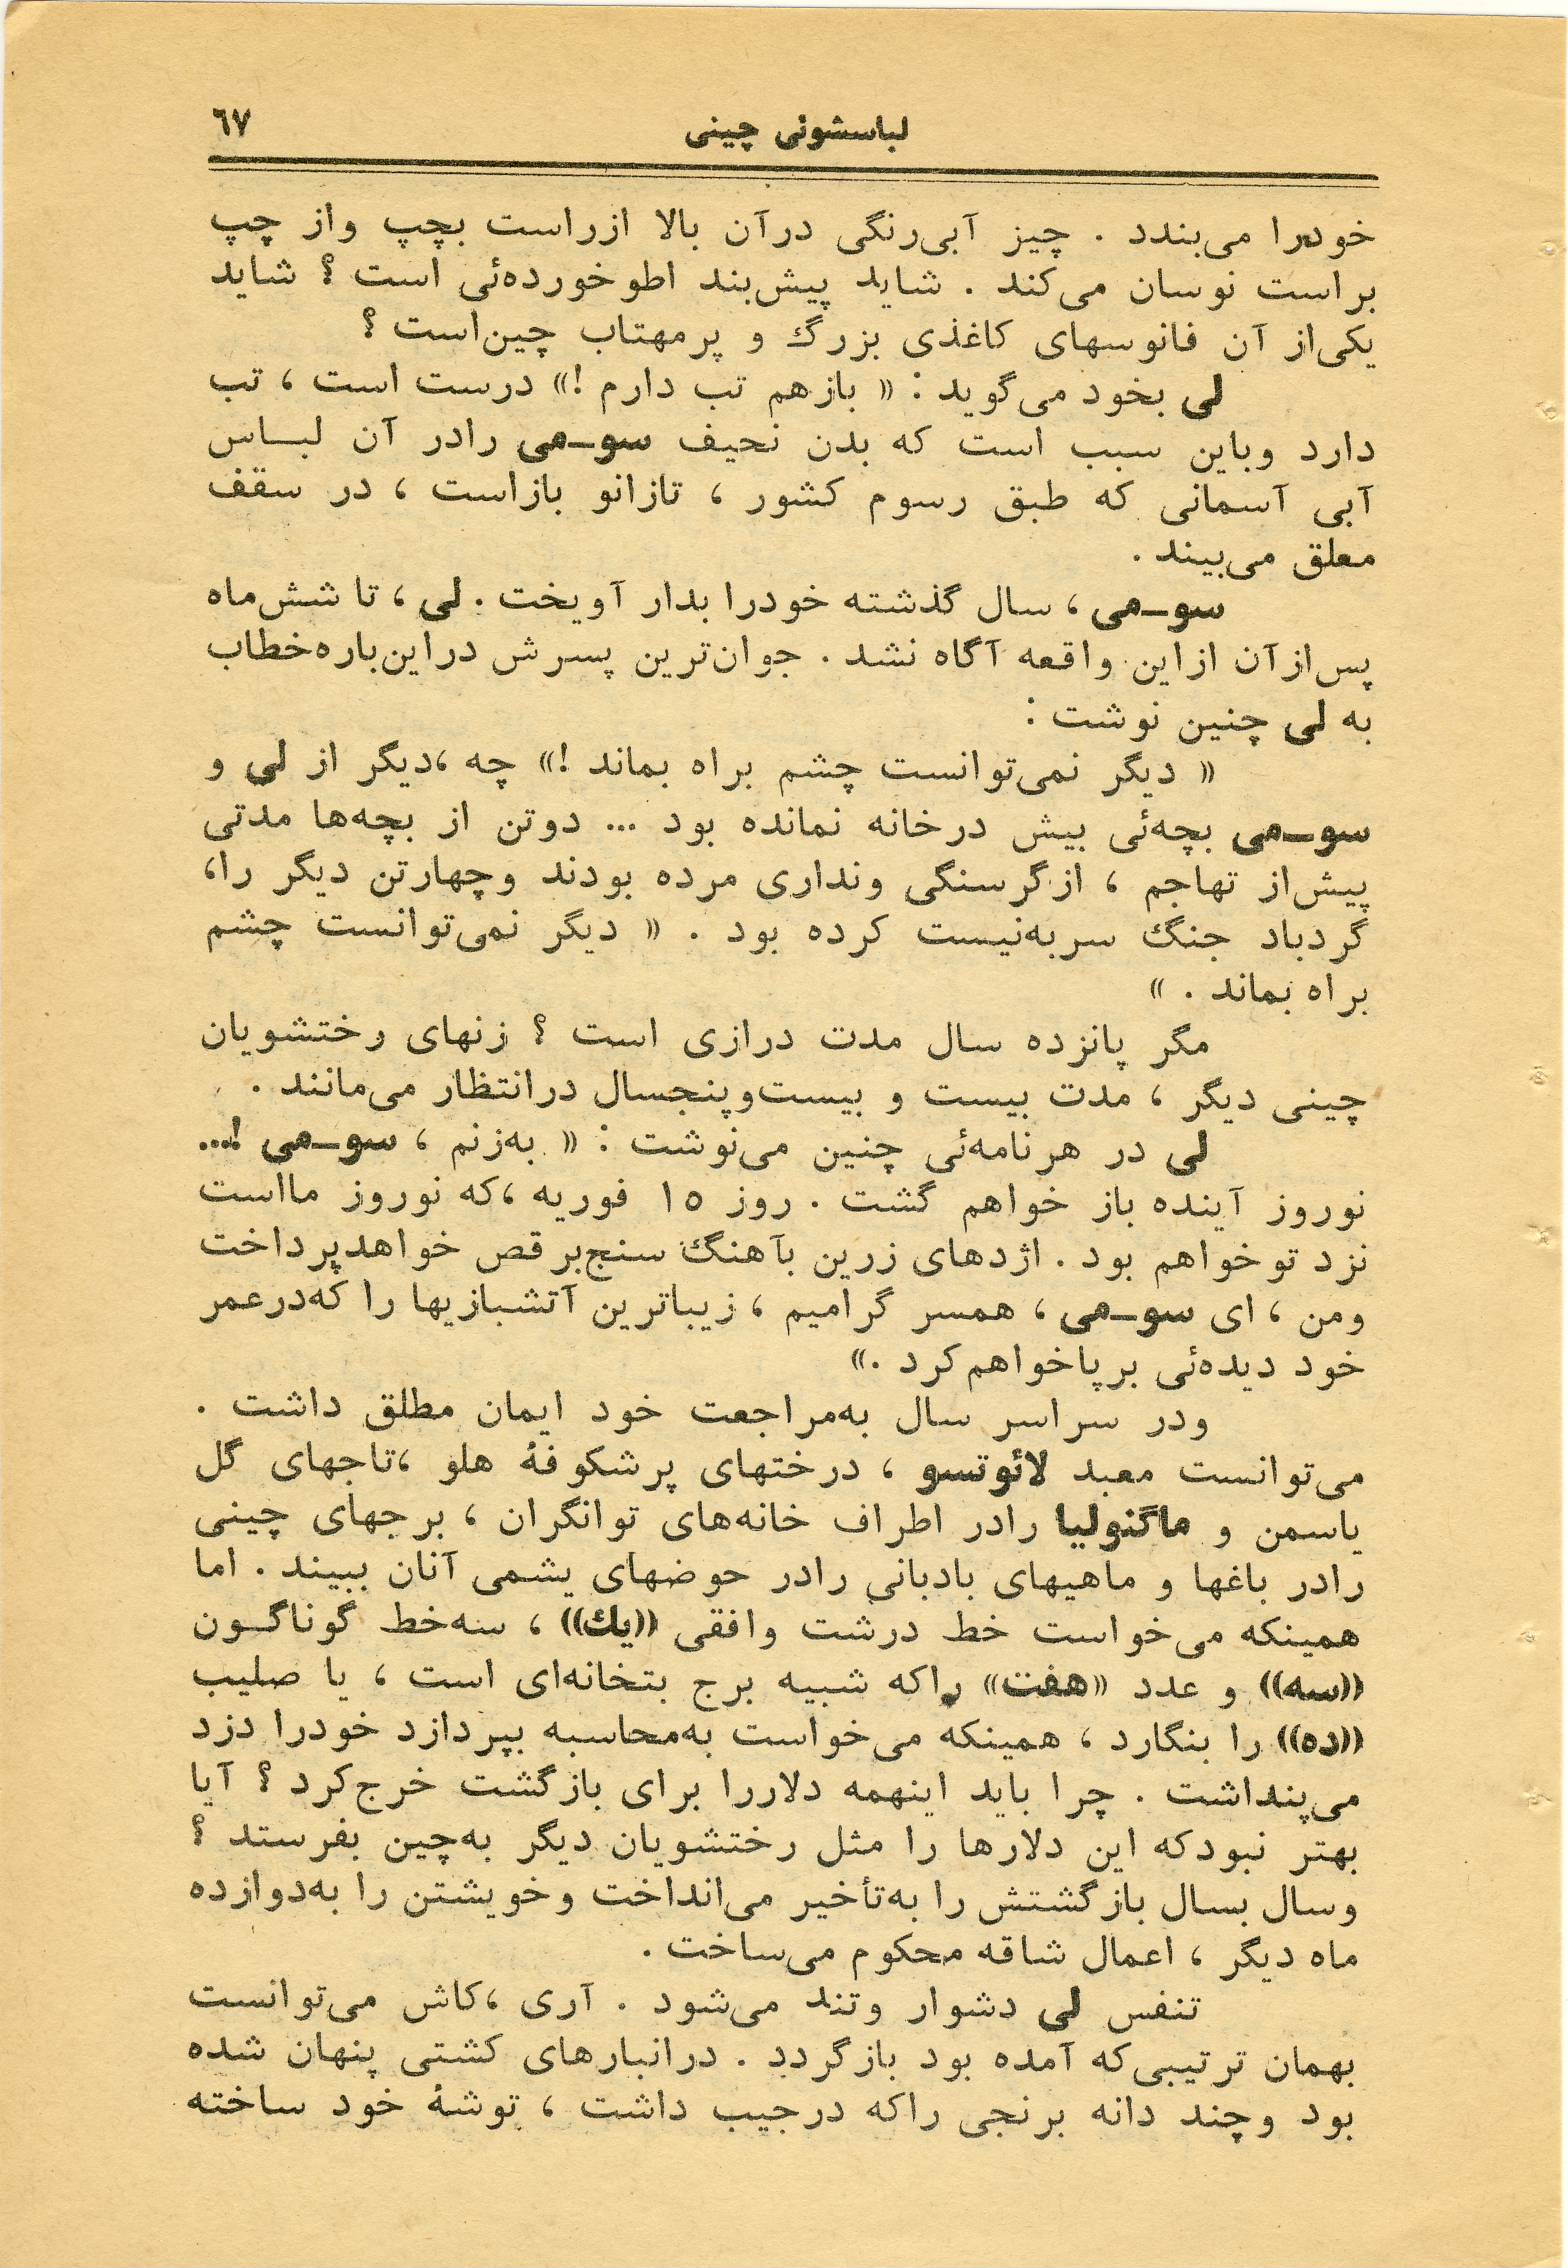 لباسشوئی چینی ٦٧
خودرا می‌بندد . چیز آبی‌رنگی درآن بالا ازراست بچپ واز چپ
براست نوسان می‌کند . شاید پیش‌بند اطو خورده‌ئی است ؟ شاید
یکی‌از آن فانوسهای کاغذی بزرگ و پرمهتاب چین‌است ؟
لی بخود می‌گوید : « بازهم تب دارم !» درست است ، تب
دارد وباین سبب است که بدن نحیف سو-می رادر آن لباس
آبی آسمانی که طبق رسوم کشور ، تازانو بازاست ، در سقف
معلق می‌بیند .
سو-می ، سال گذشته خودرا بدار آویخت . لی ، تا شش‌ماه
پس‌ازآن ازاین واقعه آگاه نشد . جوان‌ترین پسرش دراین‌باره خطاب
به لی چنین نوشت :
« دیگر نمی‌توانست چشم براه بماند !» چه ،دیگر از لی و
سو-می بچه‌ئی بیش درخانه نمانده بود ... دوتن از بچه‌ها مدتی
پیش‌از تهاجم ، ازگرسنگی ونداری مرده بودند وچهارتن دیگر را،
گردباد جنگ سربه‌نیست کرده بود . « دیگر نمی‌توانست چشم
براه بماند . »
مگر پانزده سال مدت درازی است ؟ زنهای رختشویان
چینی دیگر ، مدت بیست و بیست‌وپنجسال درانتظار می‌مانند .
لی در هرنامه‌ئی چنین می‌نوشت : « به‌زنم ، سو-می !...
نوروز آینده باز خواهم گشت . روز ١٥ فوریه ،که نوروز مااست
نزد تو خواهم بود . اژدهای زرین بآهنگ سنج‌برقص خواهدپرداخت
ومن ، ای سو-می ، همسر گرامیم ، زیباترین آتشبازیها را که‌درعمر
خود دیده‌ئی برپاخواهم‌کرد .»
ودر سراسر سال به‌مراجعت خود ایمان مطلق داشت .
می‌توانست معبد لائوتسو ، درختهای پرشکوفهٔ هلو ،تاجهای گل
یاسمن و ماگنولیا رادر اطراف خانه‌های توانگران ، برجهای چینی
رادر باغها و ماهیهای بادبانی رادر حوضهای یشمی آنان ببیند . اما
همینکه می‌خواست خط درشت وافقی «یك» ، سه‌خط گوناگون
«سه» و عدد «هفت» راکه شبیه برج بتخانه‌ای است ، یا صلیب
«ده» را بنگارد ، همینکه می‌خواست به‌محاسبه بپردازد خودرا دزد
می‌پنداشت . چرا باید اینهمه دلاررا برای بازگشت خرج‌کرد ؟ آیا
بهتر نبودکه این دلارها را مثل رختشویان دیگر به‌چین بفرستد ؟
وسال بسال بازگشتش را به‌تأخیر می‌انداخت وخویشتن را به‌دوازده
ماه دیگر ، اعمال شاقه محکوم می‌ساخت .
تنفس لی دشوار وتند می‌شود . آری ،کاش می‌توانست
بهمان ترتیبی‌که آمده بود بازگردد . درانبارهای کشتی پنهان شده
بود وچند دانه برنجی راکه درجیب داشت ، توشهٔ خود ساخته